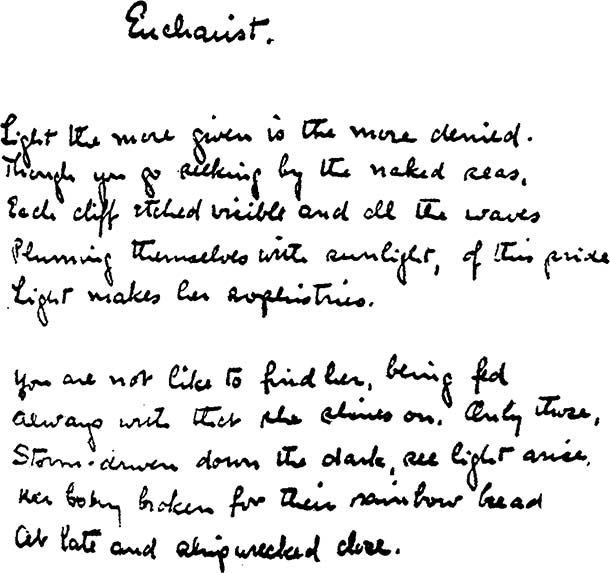 Eucharist.
Light the more given is the more denied.
Though you go seeking by the naked seas,
Each cliff etched visible and all the waves
Pluming themselves with sunlight, of this pride
Light makes her sophistries.
You are not like to find her, being fed
Always with that she shines on. Only those,
Storm-driven down the dark, see light arise,
Her body broken for their rainbow bread
At late and shipwrecked close.